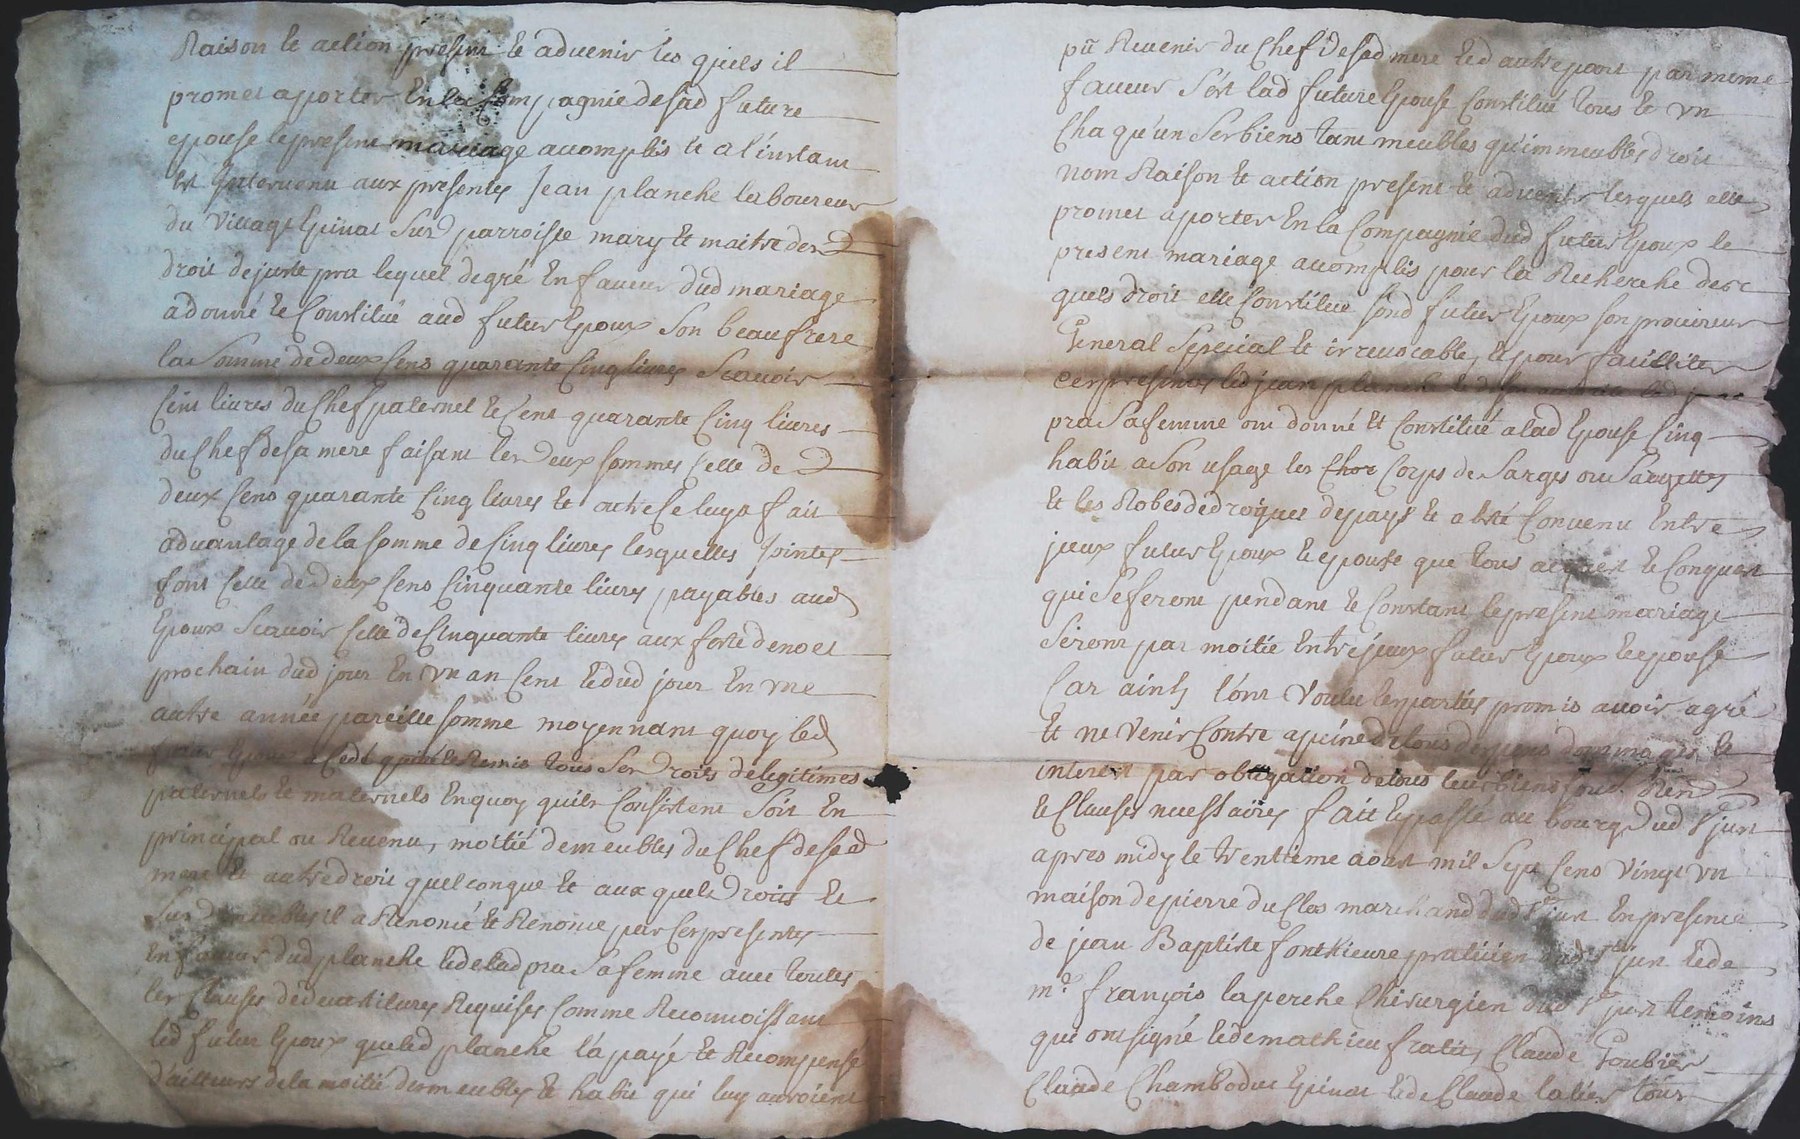 Raison et action present et advenir les quels il
promet aporter En la Compagnie de sad future
epouse le present mariage acomplis et a l'instant
Est Intervenu aux presentes Jean planche laboureur
du Village Epinat Susd parroisse mary et maitre des
droit de juste pra lequel de gré En faveur dud mariage
a donné et Constitué aud futur Epoux Son beaufrere
la Somme de deux Cens quarante Cinq livres Scavoir
Cent livres du Chef paternel et Cent quarante Cinq livres
du Chef de sa mere faisant les deux sommes Celle de
deux Cens quarante Cinq livres et outre Ce luy a fait
advantage de la somme de Cinq livres lesquelles Jointes
font Celle de deux Cens Cinquante livres payables aud
Epoux Scavoir Celle de Cinquante livres aux feste de noel
prochain dud jour En Un an Cent et dud jour En Une
autre année pareille somme moyennant quoy led
futur Epoux a Cedé quitté et Remis tous Ses Droits de legitimes
paternels et maternels En quoy quils Consistent Soit En
principal ou Revenu, moitié de meubles du Chef de sad
mere et autre droit quelconque et aux quels Droits et
Susd meubles il a Renoncé et Renonce par Ces presentes
En faveur dud planche et de lad pra Sa femme avec toutes
les Clauses de devestitures Requises Comme Reconnoissant
led futur Epoux que led planche l'a payé et Recompensé
d'ailleurs de la moitié desd meubles et habit qui luy auroient
pû Revenir du Chef de sad mere Et d'autre part par meme
faveur S'est lad future Epouse Constitué tous et Un
Cha qu'un Ses biens tant meubles qu'immeubles droit
nom Raison et action present et advenir lesquels elle
promet aporter En la Compagnie dud futur Epoux le
present mariage acomplis pour la Recherche des
quels droit elle Constitue sond futur Epoux son procureur
General Special et irrevocable, et pour faciliter
Ces presentes led jean planche
pra Sa femme ont donné Et Constitué a lad Epouse Cinq
habit a Son usage les Corps de Sarges ou Sargettes
Et les Robes de droguet de pays et a Esté Convenu Entre
jceux futur Epoux et epouse que tous acquest et Conquest
qui Se feront pendant et Constant le present mariage
Seront par moitié Entre jceux futur Epoux et epouse
Car ainsy l'ont Voulu les parties promis avoir agré
Et ne Venir Contre a peine de tous despens dommages et
interest par obligation de tous leurs biens
et Clauses necessaires fait et passé au bourg dud St just
apres midy le trentième aoust mil Sept Cens Vingt un
maison de pierre du Clos marchand dud St just En presence
de jean Baptiste praticien dud St just et de
me françois laperche Chirurgien dud St just temoins
qui ont signé et de mathieu Claude Goubier
Claude Chambodut Epinat et de Claude tous